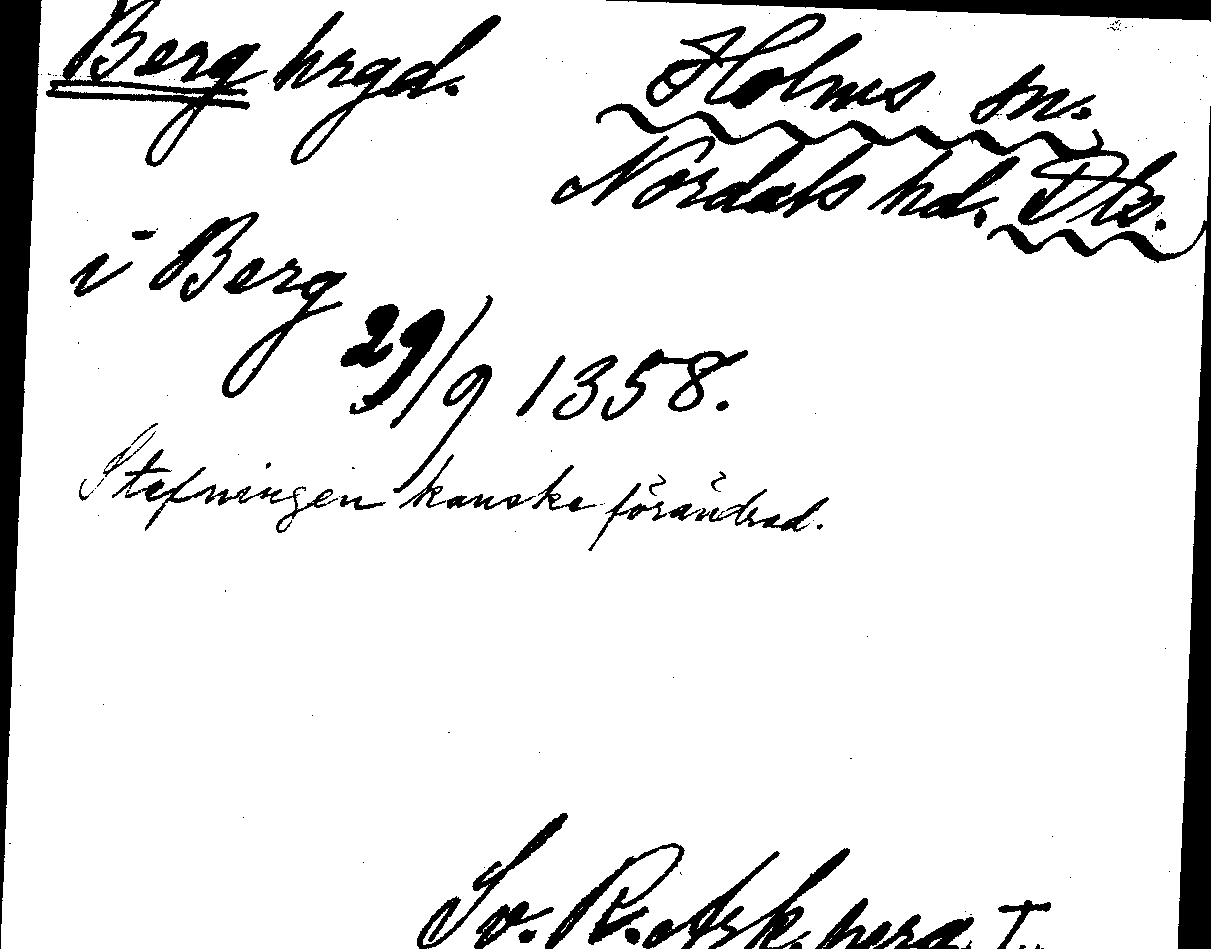 Berg hrgd.
Holms sn.
Nordals hd. Dls.
i Berg
29/9 1358.
Stafningen kanske förändrad.
Sv. R. Ark. perg.